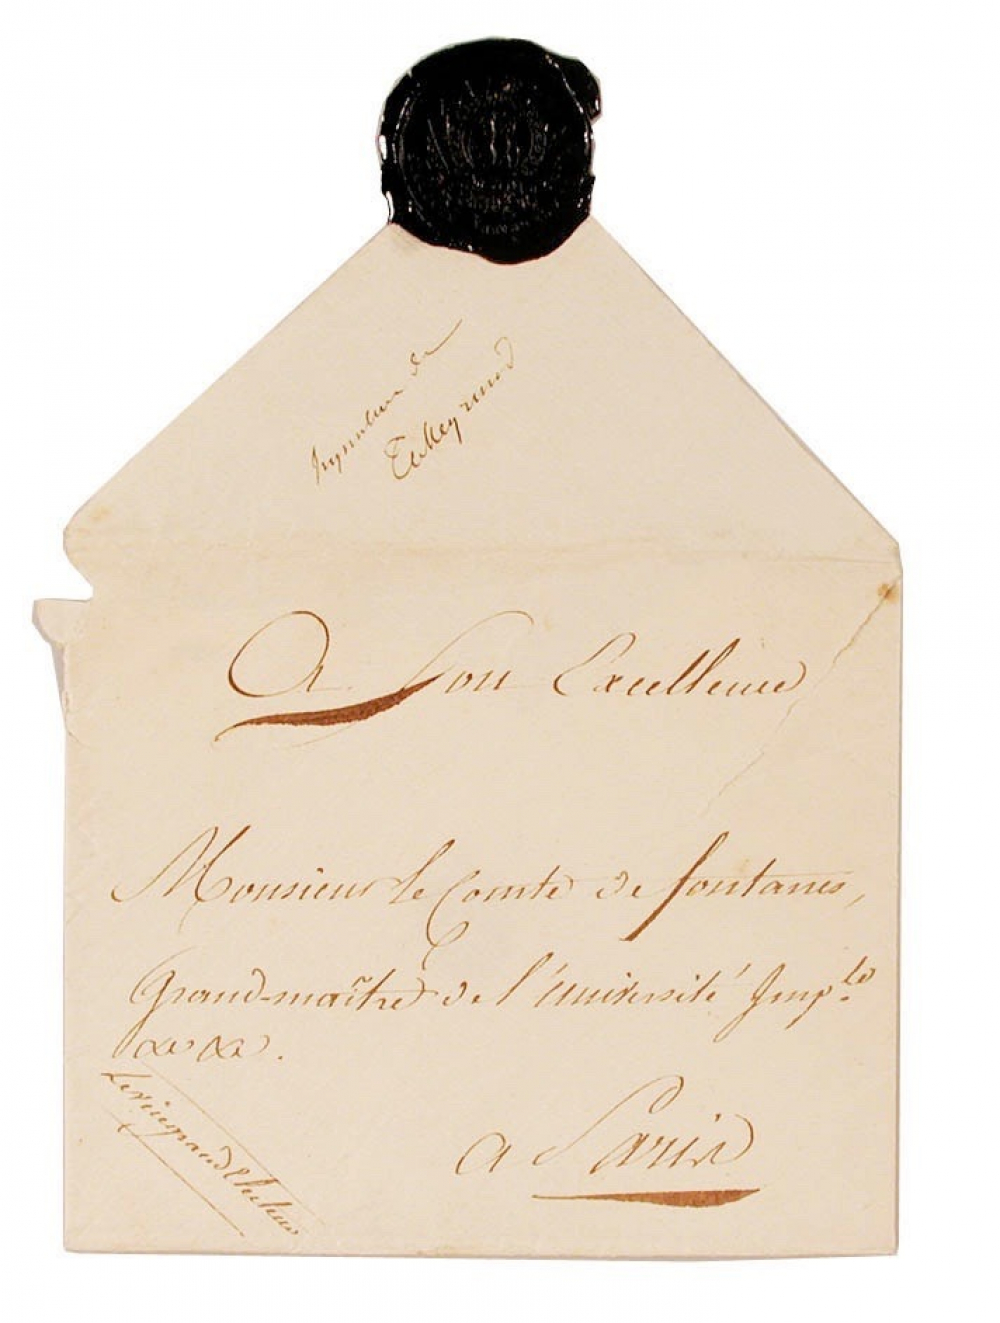 Signature de
Talleyrand
A Son Excellence
Monsieur le Comte de fontanes,
Grand-maître de l'université Imp.le
&c &c.
Le vice grand Electeur
a Paris